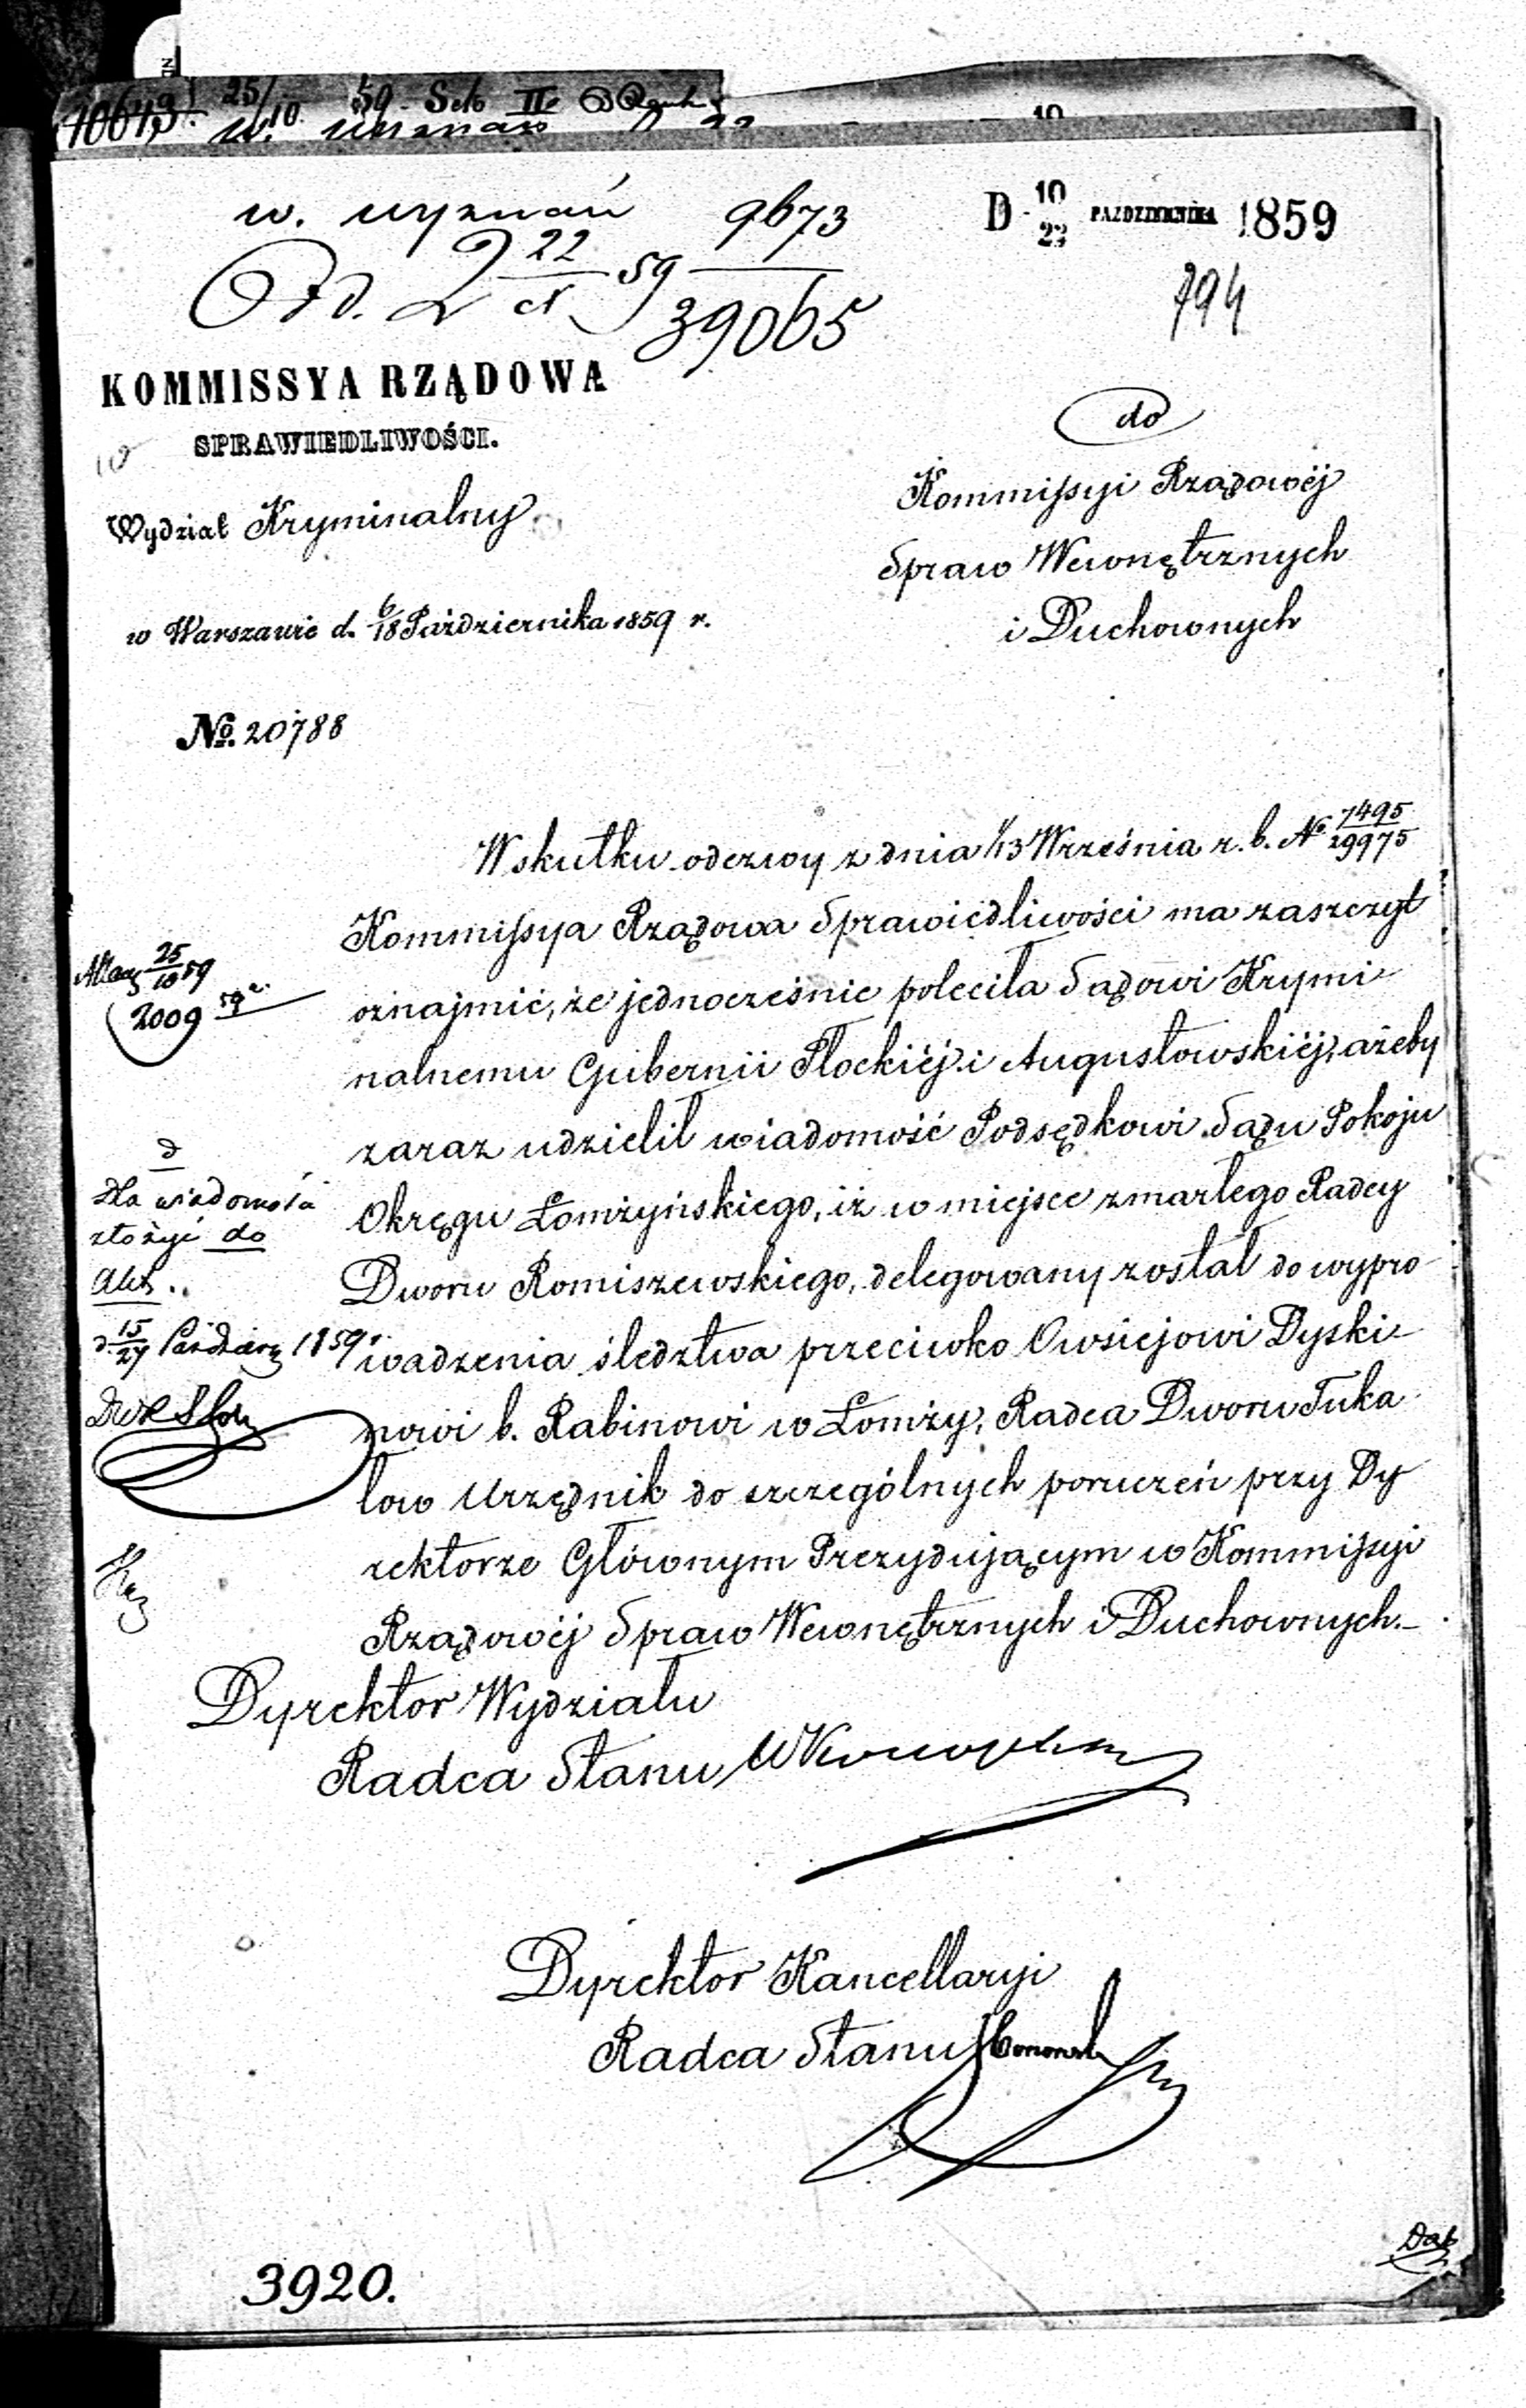 10673 25/10 59
w. wyznań 9673
D 10/22 PAZDZIERNIKA 1859
22 59 39065
794
KOMMISSYA RZĄDOWA
SPRAWIEDLIWOŚCI.
Wydział Kryminalny
w Warszawie d. 6/18 Października 1859 r.
No. 20788
do
Kommissyi Rządowéj
Spraw Wewnętrznych
i Duchownych
Wskutku odezwy z dnia 1/13 Września r. b. No 7495/29975
Kommissya Rządowa Sprawiedliwości ma zaszczyt
oznajmić, że jednocześnie poleciła Sądowi Krymi-
nalnemu Gubernii Płockiéj i Augustowskiéj, ażeby
zaraz udzielił wiadomość Podsędkowi Sądu Pokoju
Okręgu Łomżyńskiego, iż w miejsce zmarłego Radcy
Dworu Romiszewskiego, delegowany został do wypro-
wadzenia śledztwa przeciwko Owsiejowi Dyski-
nowi b. Rabinowi w Łomży, Radca Dworu Tuka-
low Urzędnik do szczególnych poruczeń przy Dy-
rektorze Głównym Prezydującym w Kommissyi
Rządowéj Spraw Wewnętrznych i Duchownych.
25/10 59
2009 59
d
dla wiadomości
złożyć do
akt.
d. 15/27 Paździer 1859 r.
Dyrektor Wydziału
Radca Stanu
Dyrektor Kancellaryi
Radca Stanu
3920.